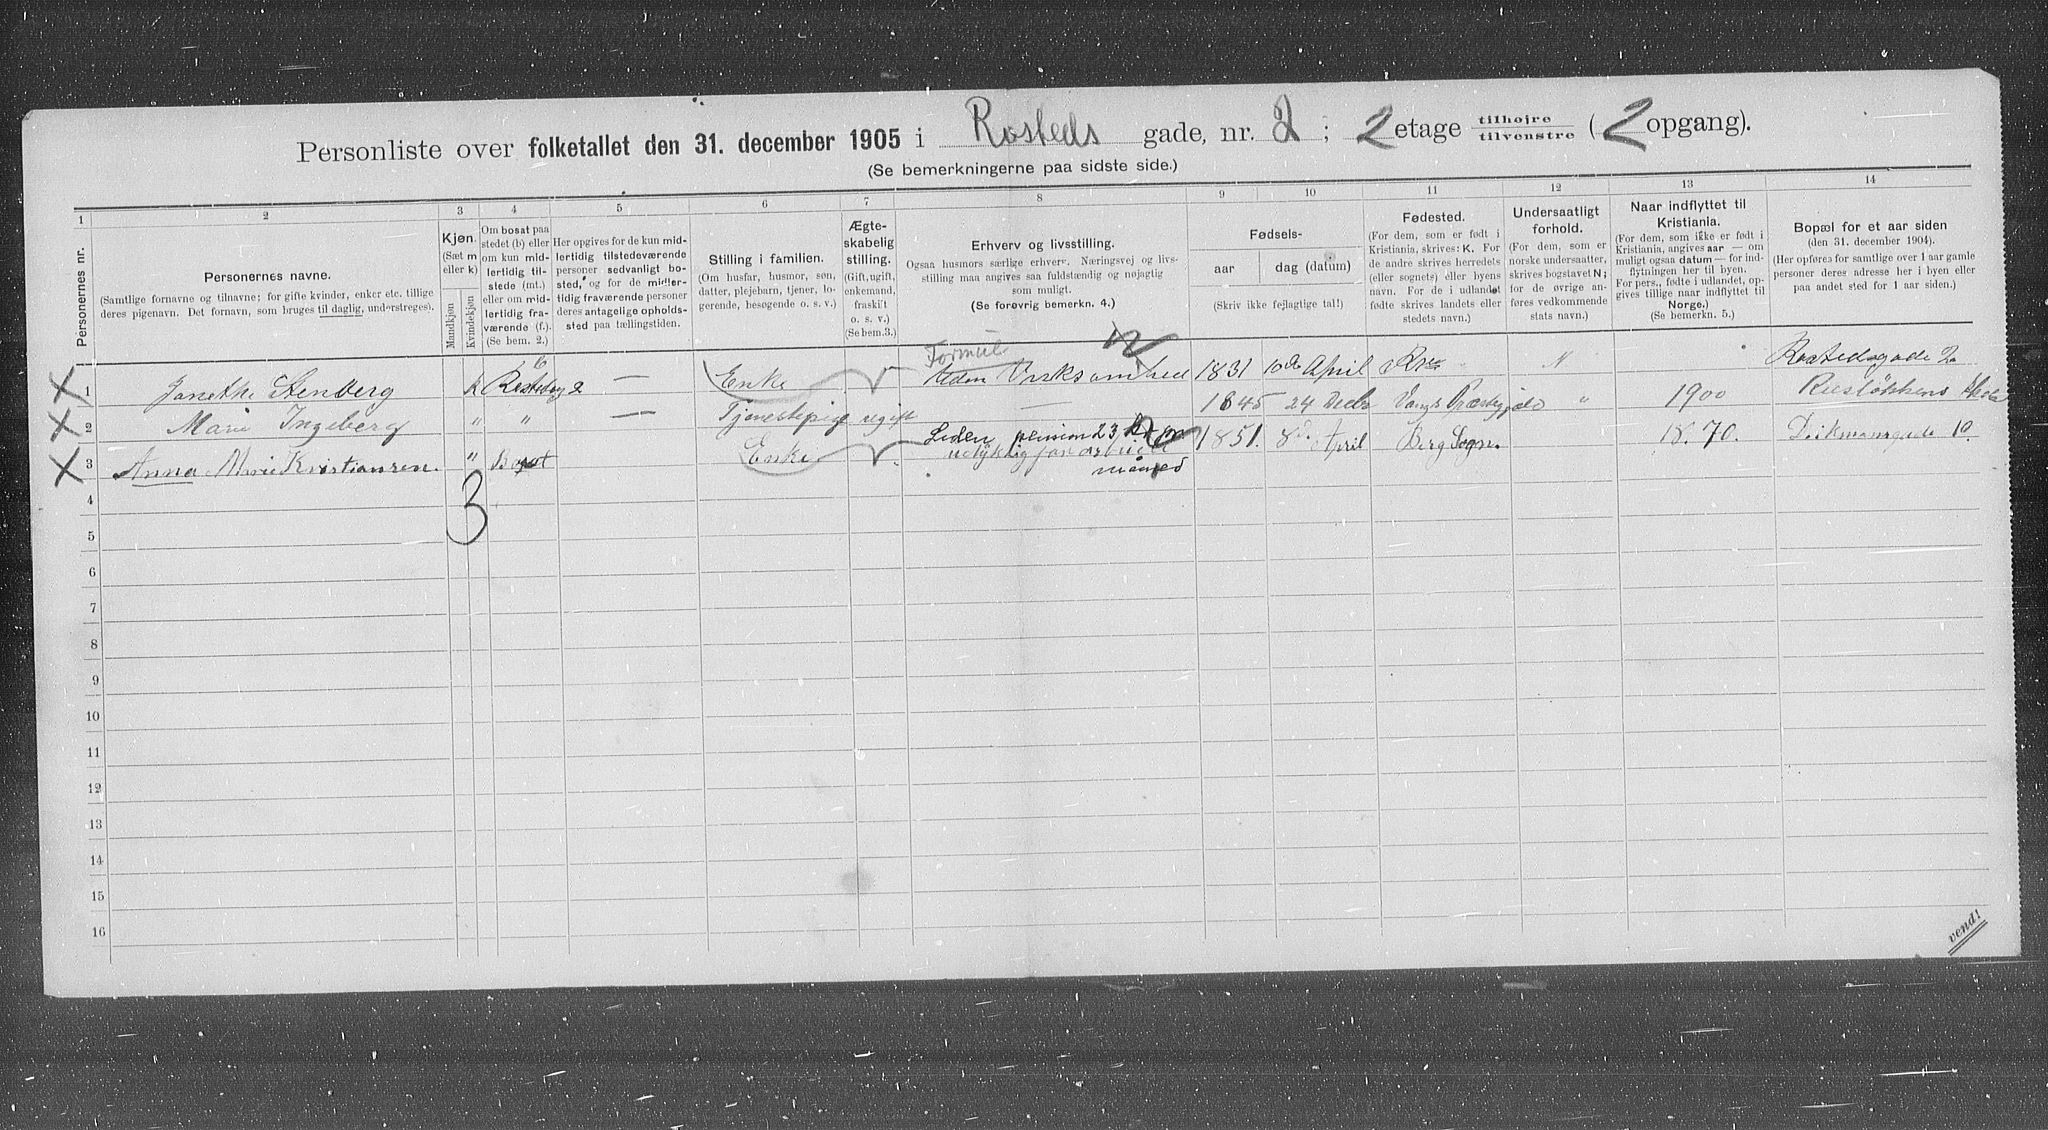 Personliste over folketallet den 31. december 1905 i Rosteds gade, nr. 2; 2 etage tilhøjre tilvenstre (2 opgang).
(Se bemerkningerne paa sidste side.)
1 2 3 4 5 6 7 8 9 10 11 12 13 14
Personernes nr.
Personernes navne.
(Samtlige fornavne og tilnavne; for gifte kvinder, enker etc. tillige
deres pigenavn. Det fornavn, som bruges til daglig, understreges).
Kjøn.
(Sæt m
eller k)
Mandkjøn
Kvindekjøn
Om bosat paa
stedet (b) eller
om kun mid-
lertidig til-
stede (mt.)
eller om mid-
lertidig fra-
værende (f.).
(Se bem. 2.)
Her opgives for de kun mid-
lertidig tilstedeværende
personer sedvanligt bo-
sted, og for de midler-
tidig fraværende personer
deres antagelige opholds-
sted paa tællingstiden.
Stilling i familien.
(Om husfar, husmor, søn,
datter, plejebarn, tjener, lo-
gerende, besøgende o. s. v.)
Ægte-
skabelig
stilling.
(Gift, ugift,
enkemand,
fraskilt
o. s. v.)
(Se bem. 3.)
Erhverv og livsstilling.
Ogsaa husmors særlige erhverv. Næringsvej og livs-
stilling maa angives saa fuldstændig og nøjagtig
som muligt.
(Se forøvrig bemerkn. 4.)
Fødsels-
aar
dag (datum)
(Skriv ikke fejlagtige tal!)
Fødested.
(For dem, som er født i
Kristiania, skrives: K. For
de andre skrives herredets
(eller sognets) eller byens
navn. For de i udlandet
fødte skrives landets eller
stedets navn.)
Undersaatligt
forhold.
(For dem, som er
norske undersaatter,
skrives bogstavet N;
for de øvrige an-
føres vedkommende
stats navn.)
Naar indflyttet til
Kristiania.
(For dem, som ikke er født i
Kristiania, angives aar — om
muligt ogsaa datum — for ind-
flytningen her til byen.
For pers., fødte i udlandet, op-
gives tillige naar indflyttet til
Norge.)
(Se bemerkn. 5.)
Bopæl for et aar siden
(den 31. december 1904).
(Her opføres for samtlige over 1 aar gamle
personer deres adresse her i byen eller
paa andet sted for 1 aar siden.)
1 Janethe Stenberg k b Rostedsg 2 — Enke Formue Uden Virksomhed 1831 10de April N Rostedsgade 2
2 Marie Ingeberg " " — Tjenestepige ugift — 1845 24 Decbr Vangs Præstegjeld " 1900
3 Anna Marie Kristiansen. " Bosat Enke Liden pension 23 1851. 8de April Berg Sogn. 18.70. Dikmansgade 10
maaned
3
4
5
6
7
8
9
10
11
12
13
14
15
16
vend!